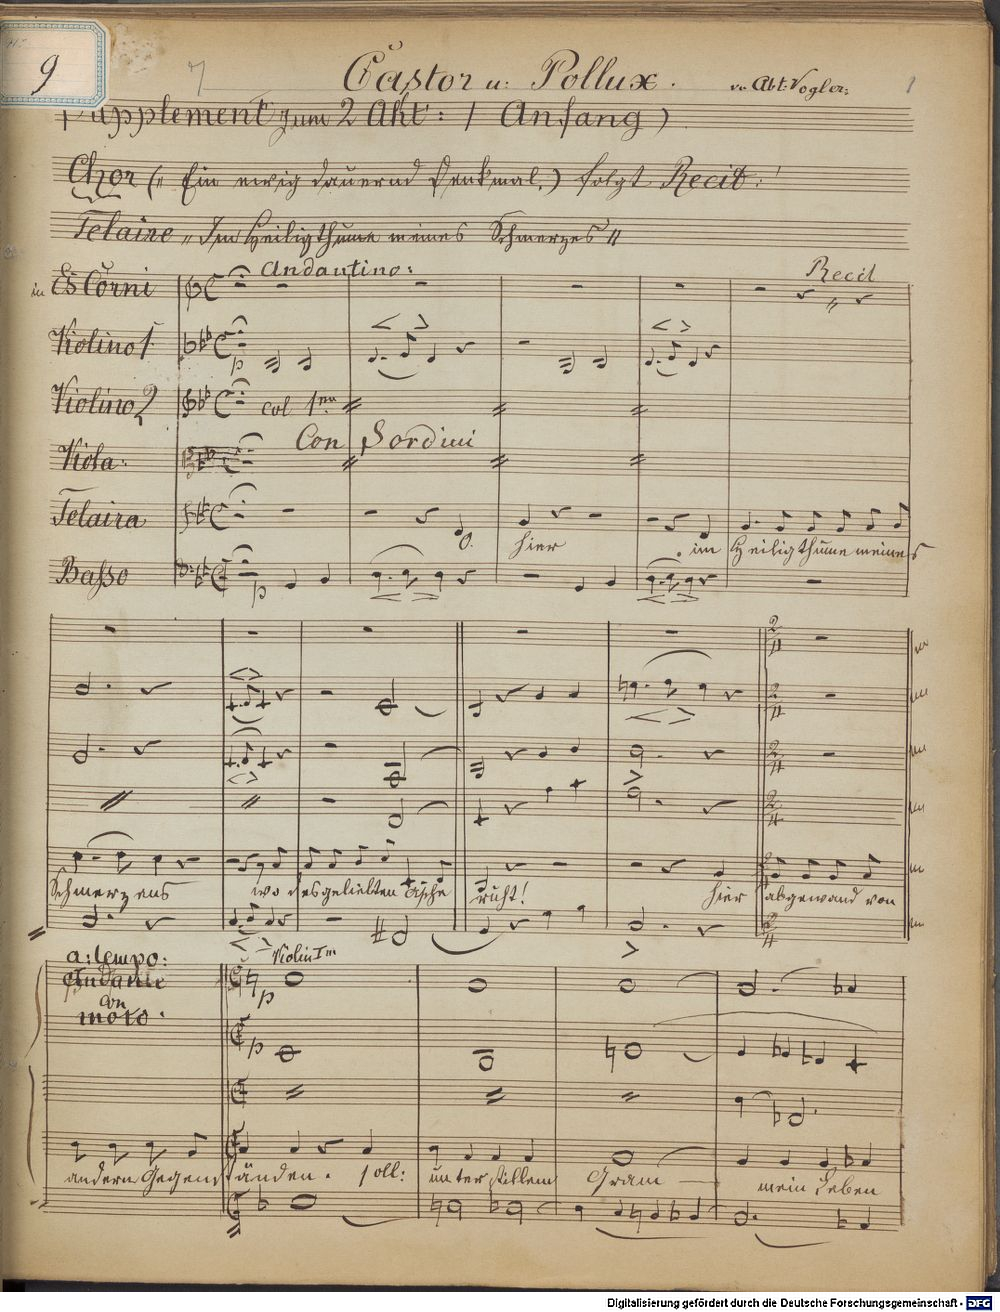 9
7
Castor u: Pollux. v. Abt: Vogler: 1
Supplement zum 2 Akt: / Anfang )
Chor („ Ein ewig dauernd Denkmal.) folgt Recit:
Telaire „ Im Heiligthume meines Schmerzes "
Andantino:
Recit
in Es Corni
Violino 1.
p
Violino 2
col 1mo
Con Sordini
Viola:
Telaira
O. hier im Heiligthume meines
Basso
p
2/4
2/4
2/4
2/4
Schmerzens wo des geliebten Asche ruht! hier abgewand von
2/4
a: tempo:
Andante
con
moto.
Violin I mo
p
p
andern Gegenständen. soll: unter stillem Gram mein Leben
Digitalisierung gefördert durch die Deutsche Forschungsgemeinschaft - DFG